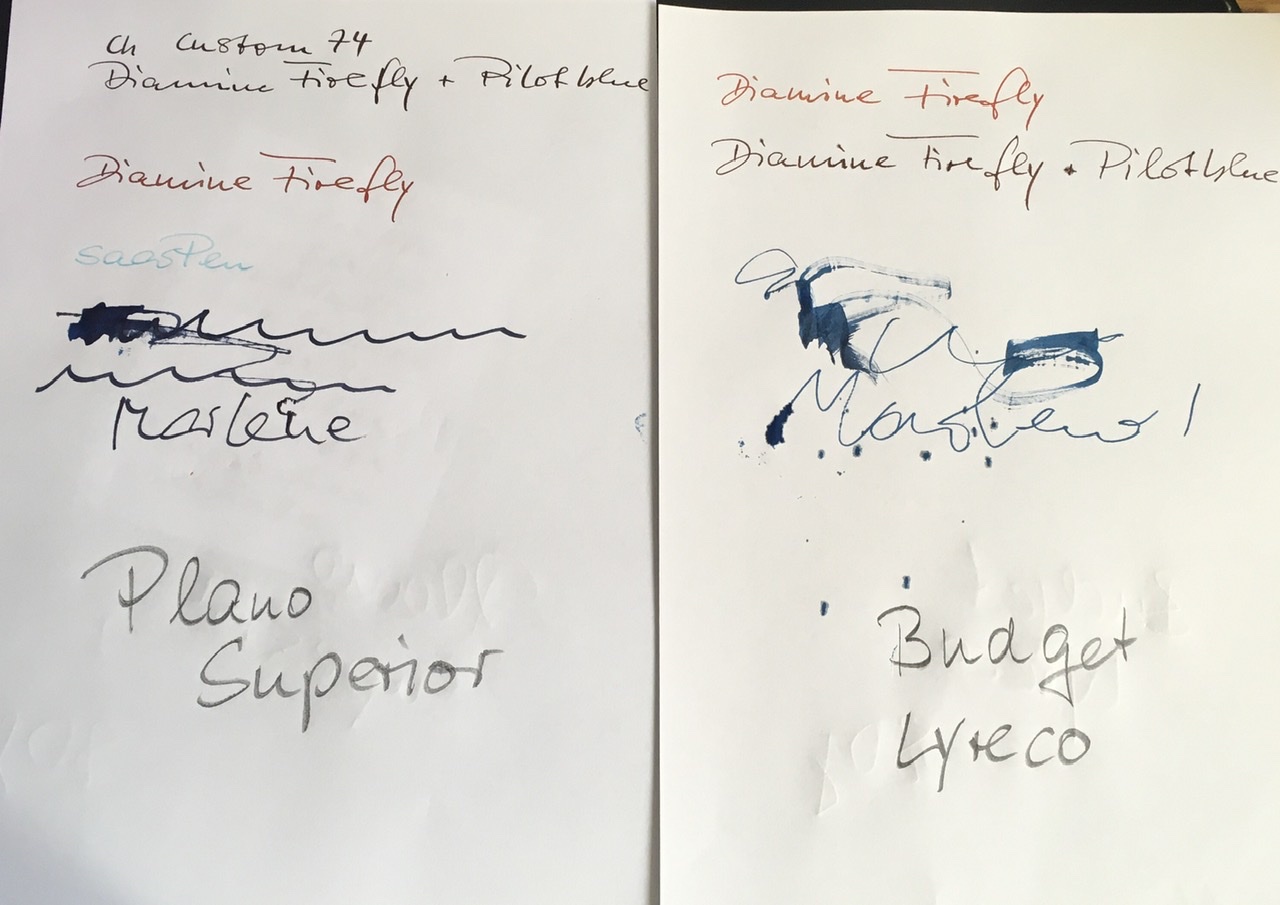 CH Custom 74
Diamine Firefly + Pilot blue
Diamine Firefly
Marlene
Plano
Superior
Diamine Firefly
Diamine Firefly + Pilot blue
Budget
Lyreco